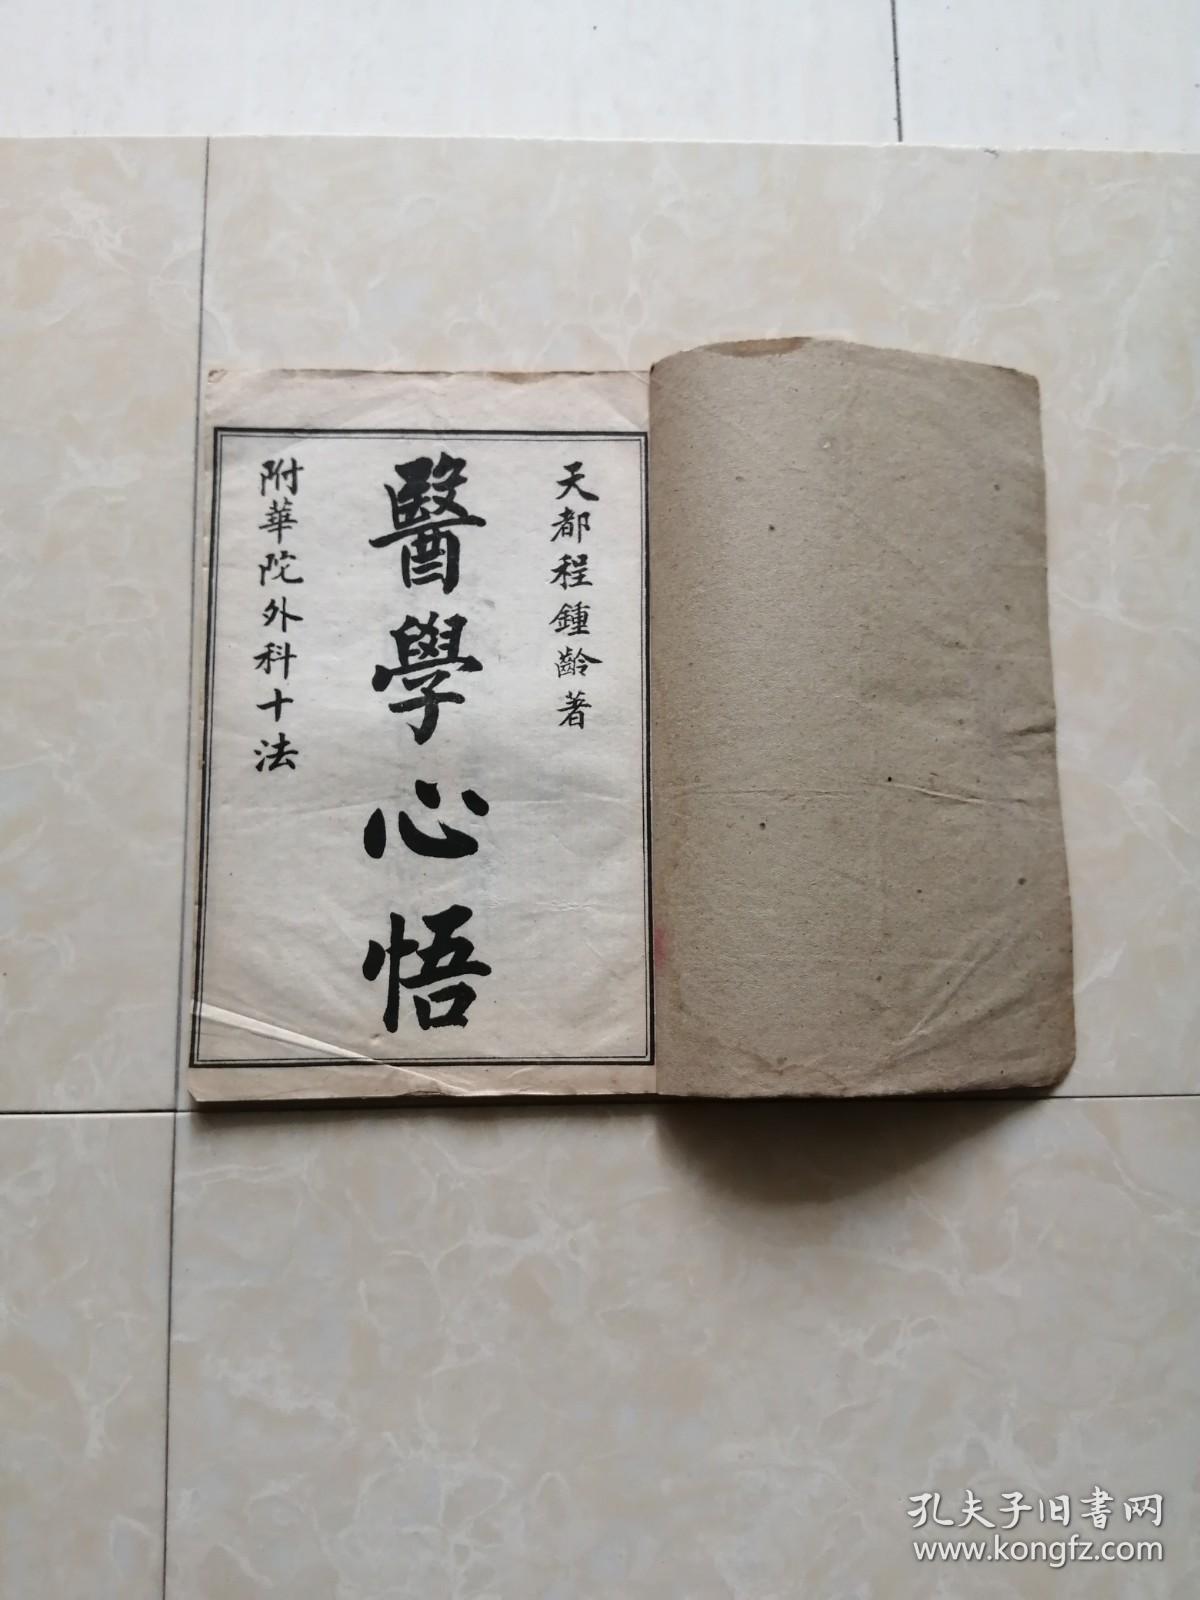 天都程鍾齡著
醫學心悟
附華陀外科十法
孔夫子旧書网
www.kongfz.com